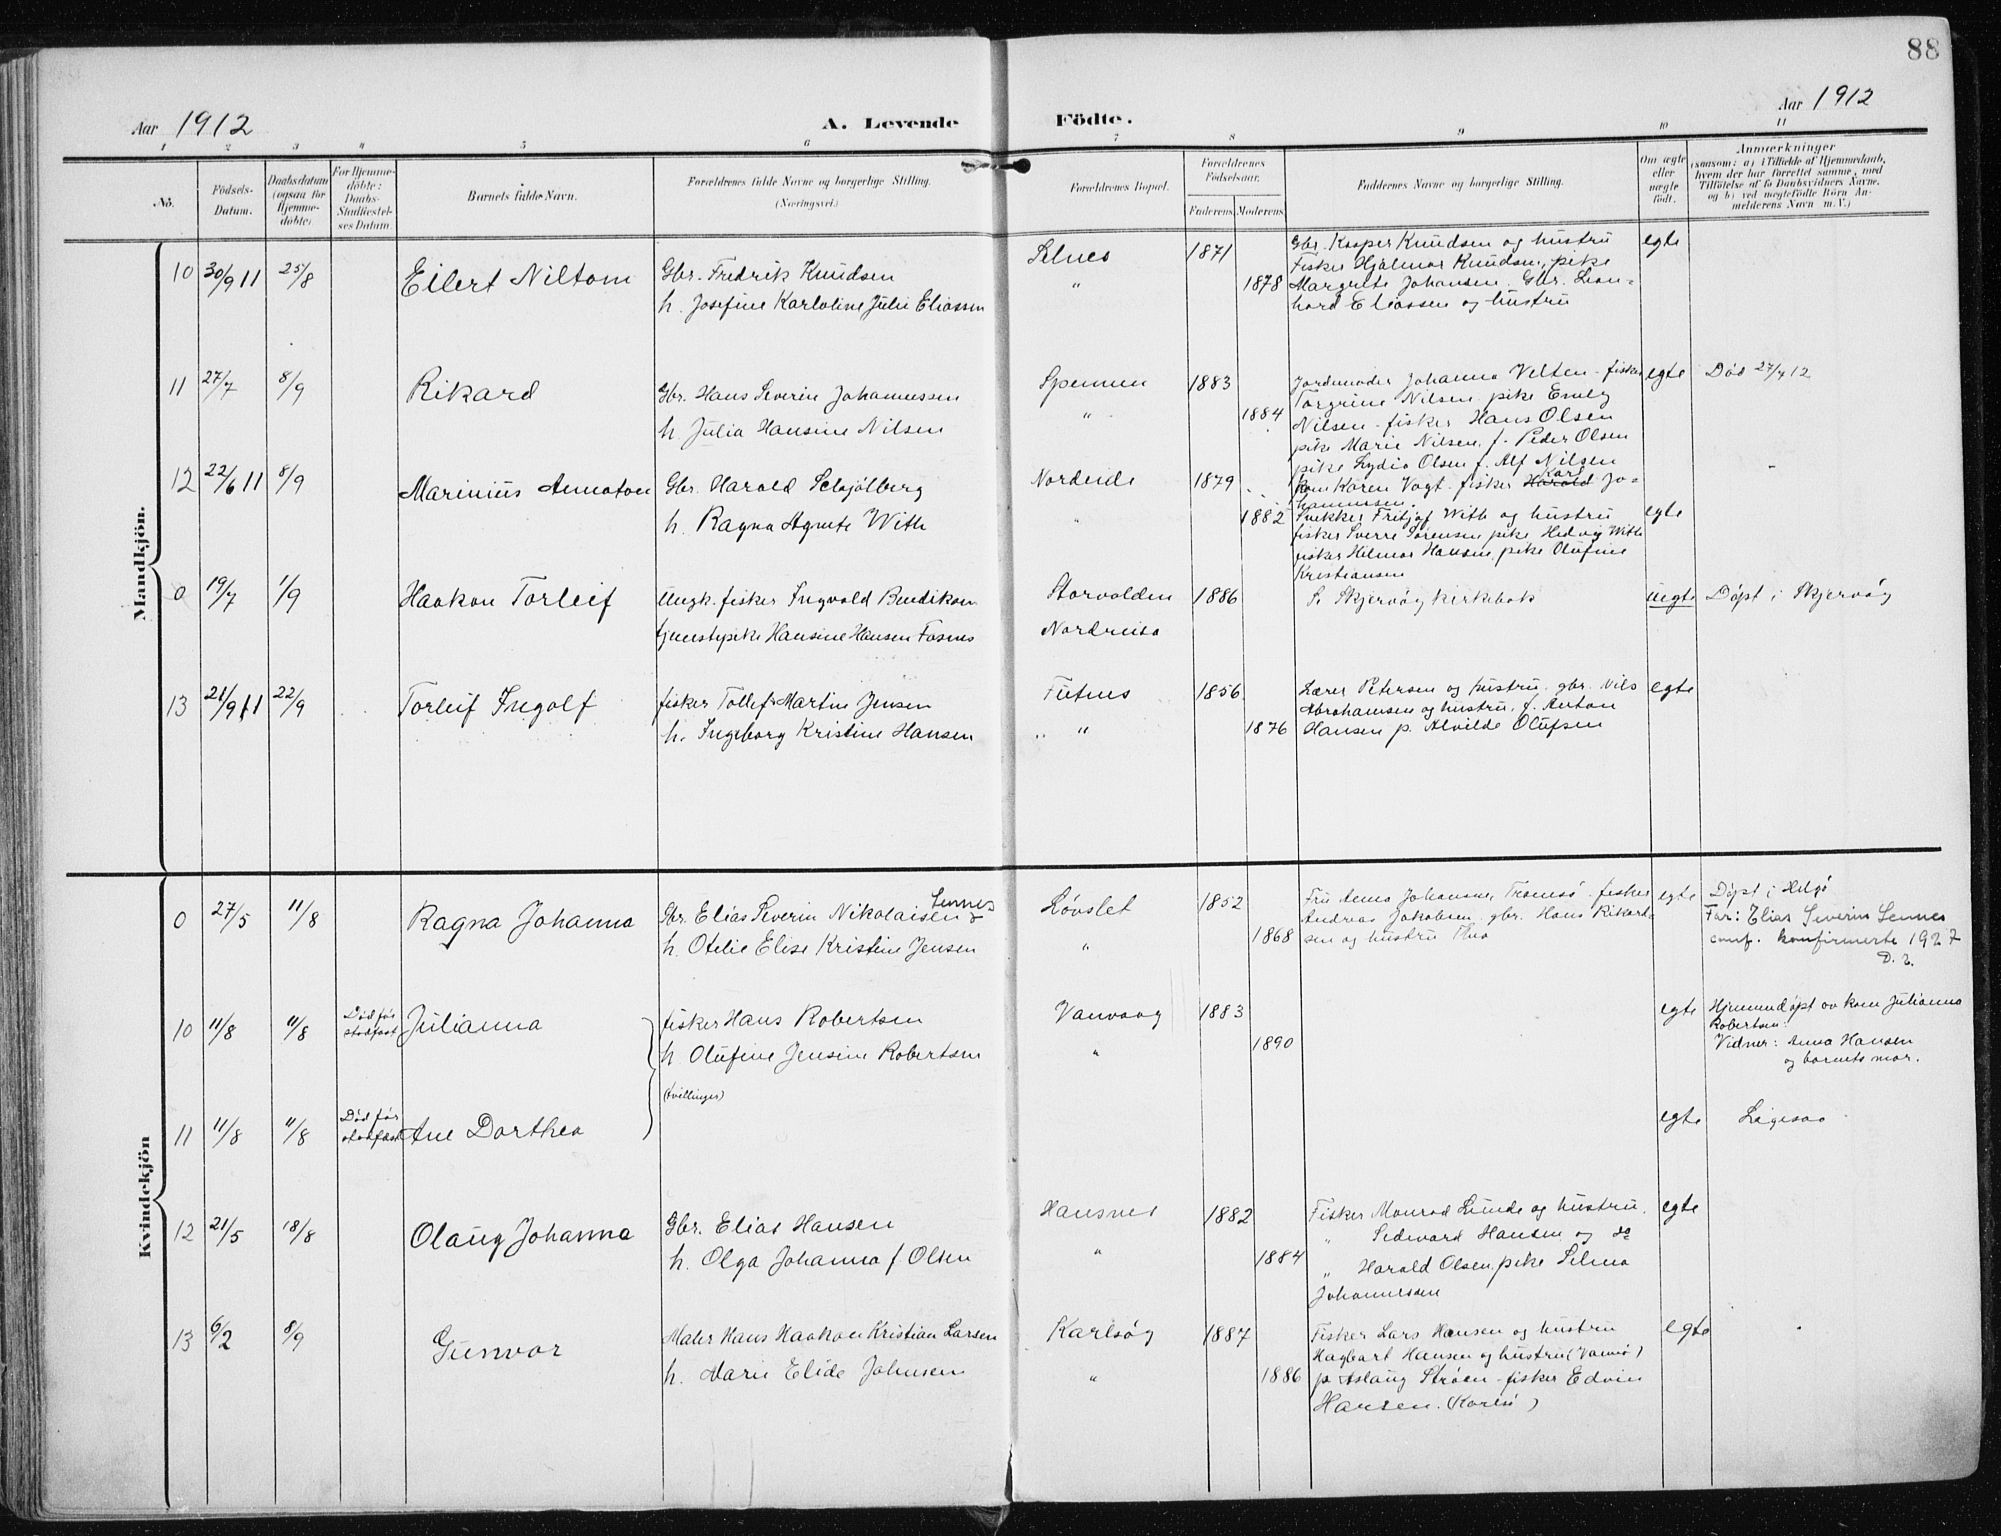 88
Aar 1912
A. Levende Födte.
Aar 1912
1 2 3 4 5 6 7 8 9 10 11
No.
Födsels-Datum.
Daabsdatum (ogsaa for Hjemmedöbte)
For Hjemmedöbte: Daabs-Stadfæstelses Datum.
Barnets fulde Navn.
Forældrenes fulde Navne og borgerlige Stilling.
(Næringsvei.)
Forældrenes Bopæl.
Forældrenes Födselsaar.
Faderens Moderens
Faddernes Navne og borgerlige Stilling.
Om ægte eller uægte födt.
Anmærkninger
(saasom: a) i Tilfælde af Hjemmedaab,
hvem der har forrettet samme, med
Tilföielse af to Daabsvidners Navne,
og b) ved uegtefödte Börn An-
melderens Navn m. V.)
Mandkjön.
10 30/9 11 25/8 Eilert Niltom Gbr. Fredrik Knudsen Selnes 1871 Gbr. Kasper Knudsen og hustru egte
Fisker Hjalmar Knudsen, pike
h. Josefine Karloline Julie Eliassen " 1878 Margrete Johansen. Gbr. Leon-
hard Eliassen og hustru
11 27/7 8/9 Rikard Gbr. Hans Severin Johannessen Spennen 1883 Jordmoder Johanna Velten - fisker egte Død 27/7 12
Torgrine Nilsen pike Emely
h. Julia Hansine Nilsen " 1884 Nilsen - fisker Hans Olsen
pike Marie Nilsen, f. Peder Olsen
pike Lydia Olsen f. Alf Nilsen
12 22/6 11 8/9 Marinius Annaton Gbr. Harald Schjølberg Nordeide 1879 kone Karen Vogt - fisker Harald Karl Jo-
hannesen
h. Ragna Agnete With " 1882 Snekker Fritjof With og hustru egte
fisker Sverre Sørensen pike Hedvig With
fisker Hilmar Hansen, pike Olufine
Kristiansen
0 19/7 1/9 Haakon Torleif Ungk. fisker Ingvald Bendiksen Storvolden 1886 S. Skjervøy kirkebok uegte Døpt i Skjervøy
tjenestepike Hansine Hansen Fosnes Nordreisa
13 21/9 11 22/9 Torleif Ingolf fisker Tollef Martin Jensen Futnes 1856 Lærer Petersen og hustru. gbr. Nils egte
Abrahamsen og hustru, f. Anton
h. Ingeborg Kristine Hansen " 1876 Hansen p. Alvilde Olufsen
Kvindekjön
0 27/5 11/8 Ragna Johanna Gbr. Elias Severin Nikolaisen Sennes Løvslet 1852 Fru Anna Johansen, Tromsö. fisker egte Døpt i Helgö
Andreas Jakobsen, gbr. Hans Rikard- Far: Elias Severin Sennes
h. Otelie Elise Kristine Jensen " 1868 sen og hustru Thea conf. konfirmerte 1927
D. E.
10 11/8 11/8 Død før stadfæst Julianna fisker Hans Robertsen Vanvaag 1883 egte Hjemmedøpt av kone Julianna
Robertsen.
h. Olufine Jensine Robertsen " 1890 Vidner: Anna Hansen
og barnets mor.
(tvillinger)
11 11/8 11/8 Død før stadfæst Ane Dorthea egte Ligesaa
12 21/5 18/8 Olaug Johanna Gbr. Elias Hansen Hansnes 1882 Fisker Monrad Lunde og hustru. egte
" Sedevard Hansen og do
h. Olga Johanna f. Olsen " 1884 " Harald Olsen, pike Selma
Johannessen
13 6/2 8/9 Gunvor Maler Hans Haakon Kristian Larsen Karlsøy 1887 Fisker Lars Hansen og hustru egte
Hagbart Hansen og hustru (Vannö)
h. Marie Elide Johnsen " 1886 p. Aslaug Strøm - fisker Edvin
Hansen. (Karlsö)